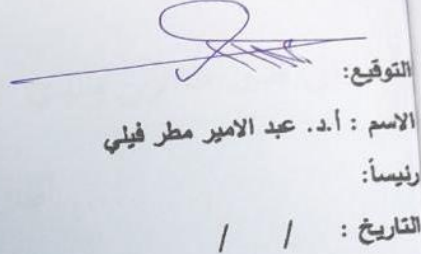 التوقيع:
الاسم : أ.د. عبد الامير مطر فيلي
رئيساً:
التاريخ : / /